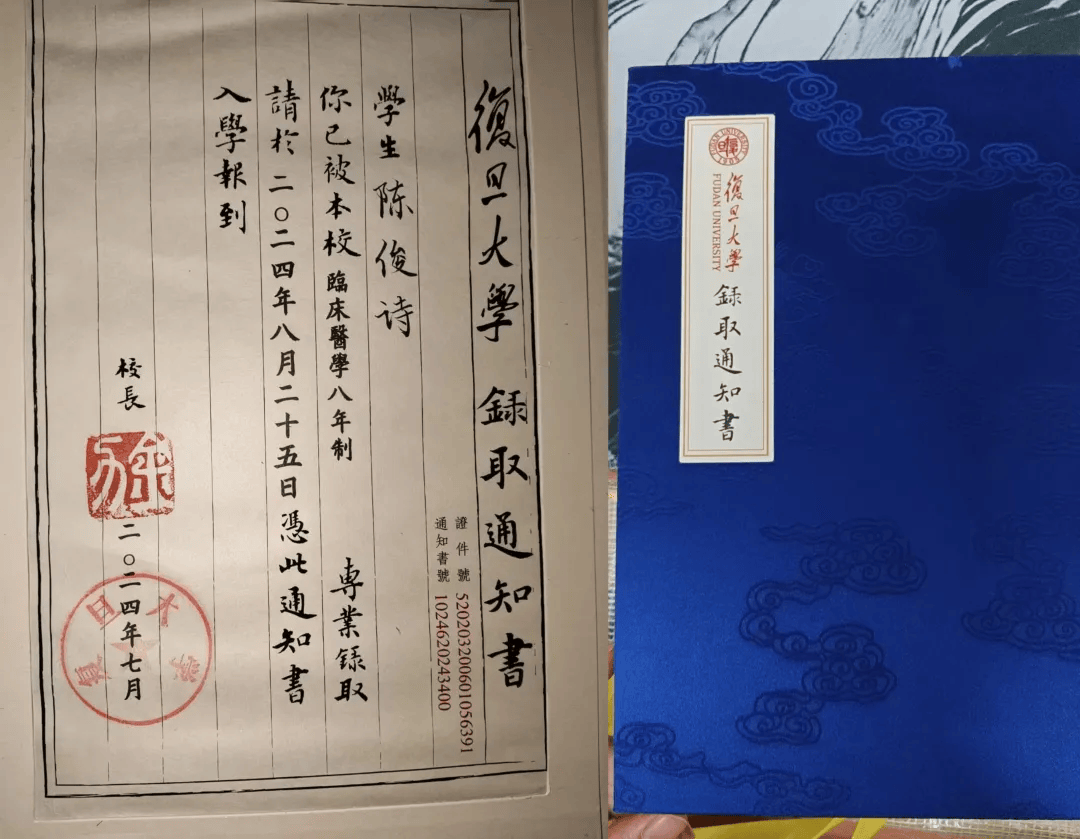 復旦大學 録取通知書
證件號 520203200601056391
通知書號 1024620243400
学生 陈俊诗
你已被本校 臨床醫學八年制 專業録取
請於 二〇二四年八月二十五日憑此通知書
入學報到
校長
二〇二四年七月
復旦大學
FUDAN UNIVERSITY
復旦大學
録取通知書